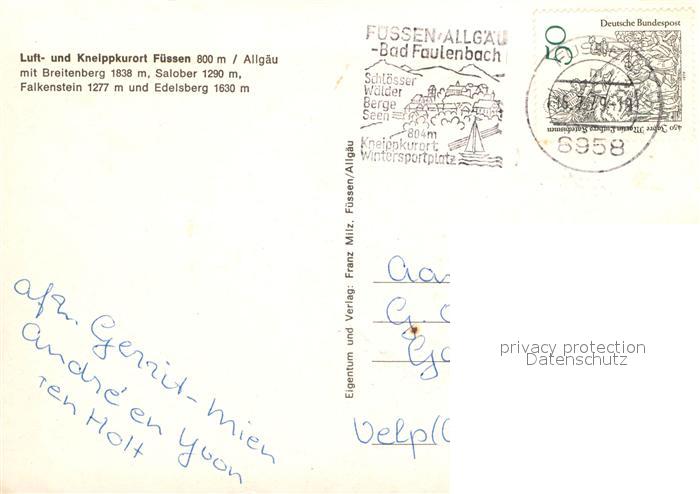 Luft- und Kneippkurort Füssen 800 m / Allgäu
mit Breitenberg 1838 m, Salober 1290 m,
Falkenstein 1277 m und Edelsberg 1630 m
FÜSSEN/ALLGÄU
-Bad Faulenbach
Schlösser
Wälder
Berge
Seen
804m
Kneippkurort
Wintersportplatz
Deutsche Bundespost
50
450 Jahre Martin Luthers Katechismus
8958
Eigentum und Verlag: Franz Milz, Füssen/Allgäu
afz. Gerrit-Mien
André en Yvon
ten Holt
Aa
G.
Velp(
privacy protection
Datenschutz